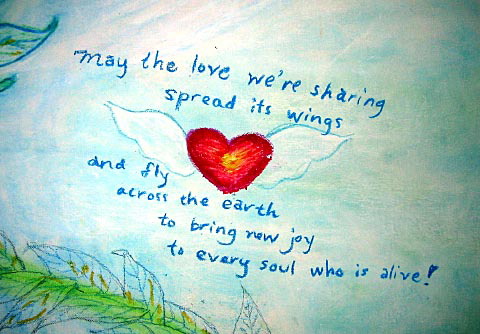 "May the love we're sharing
spread its wings
and fly
across the earth
to bring new joy
to every soul who is alive!